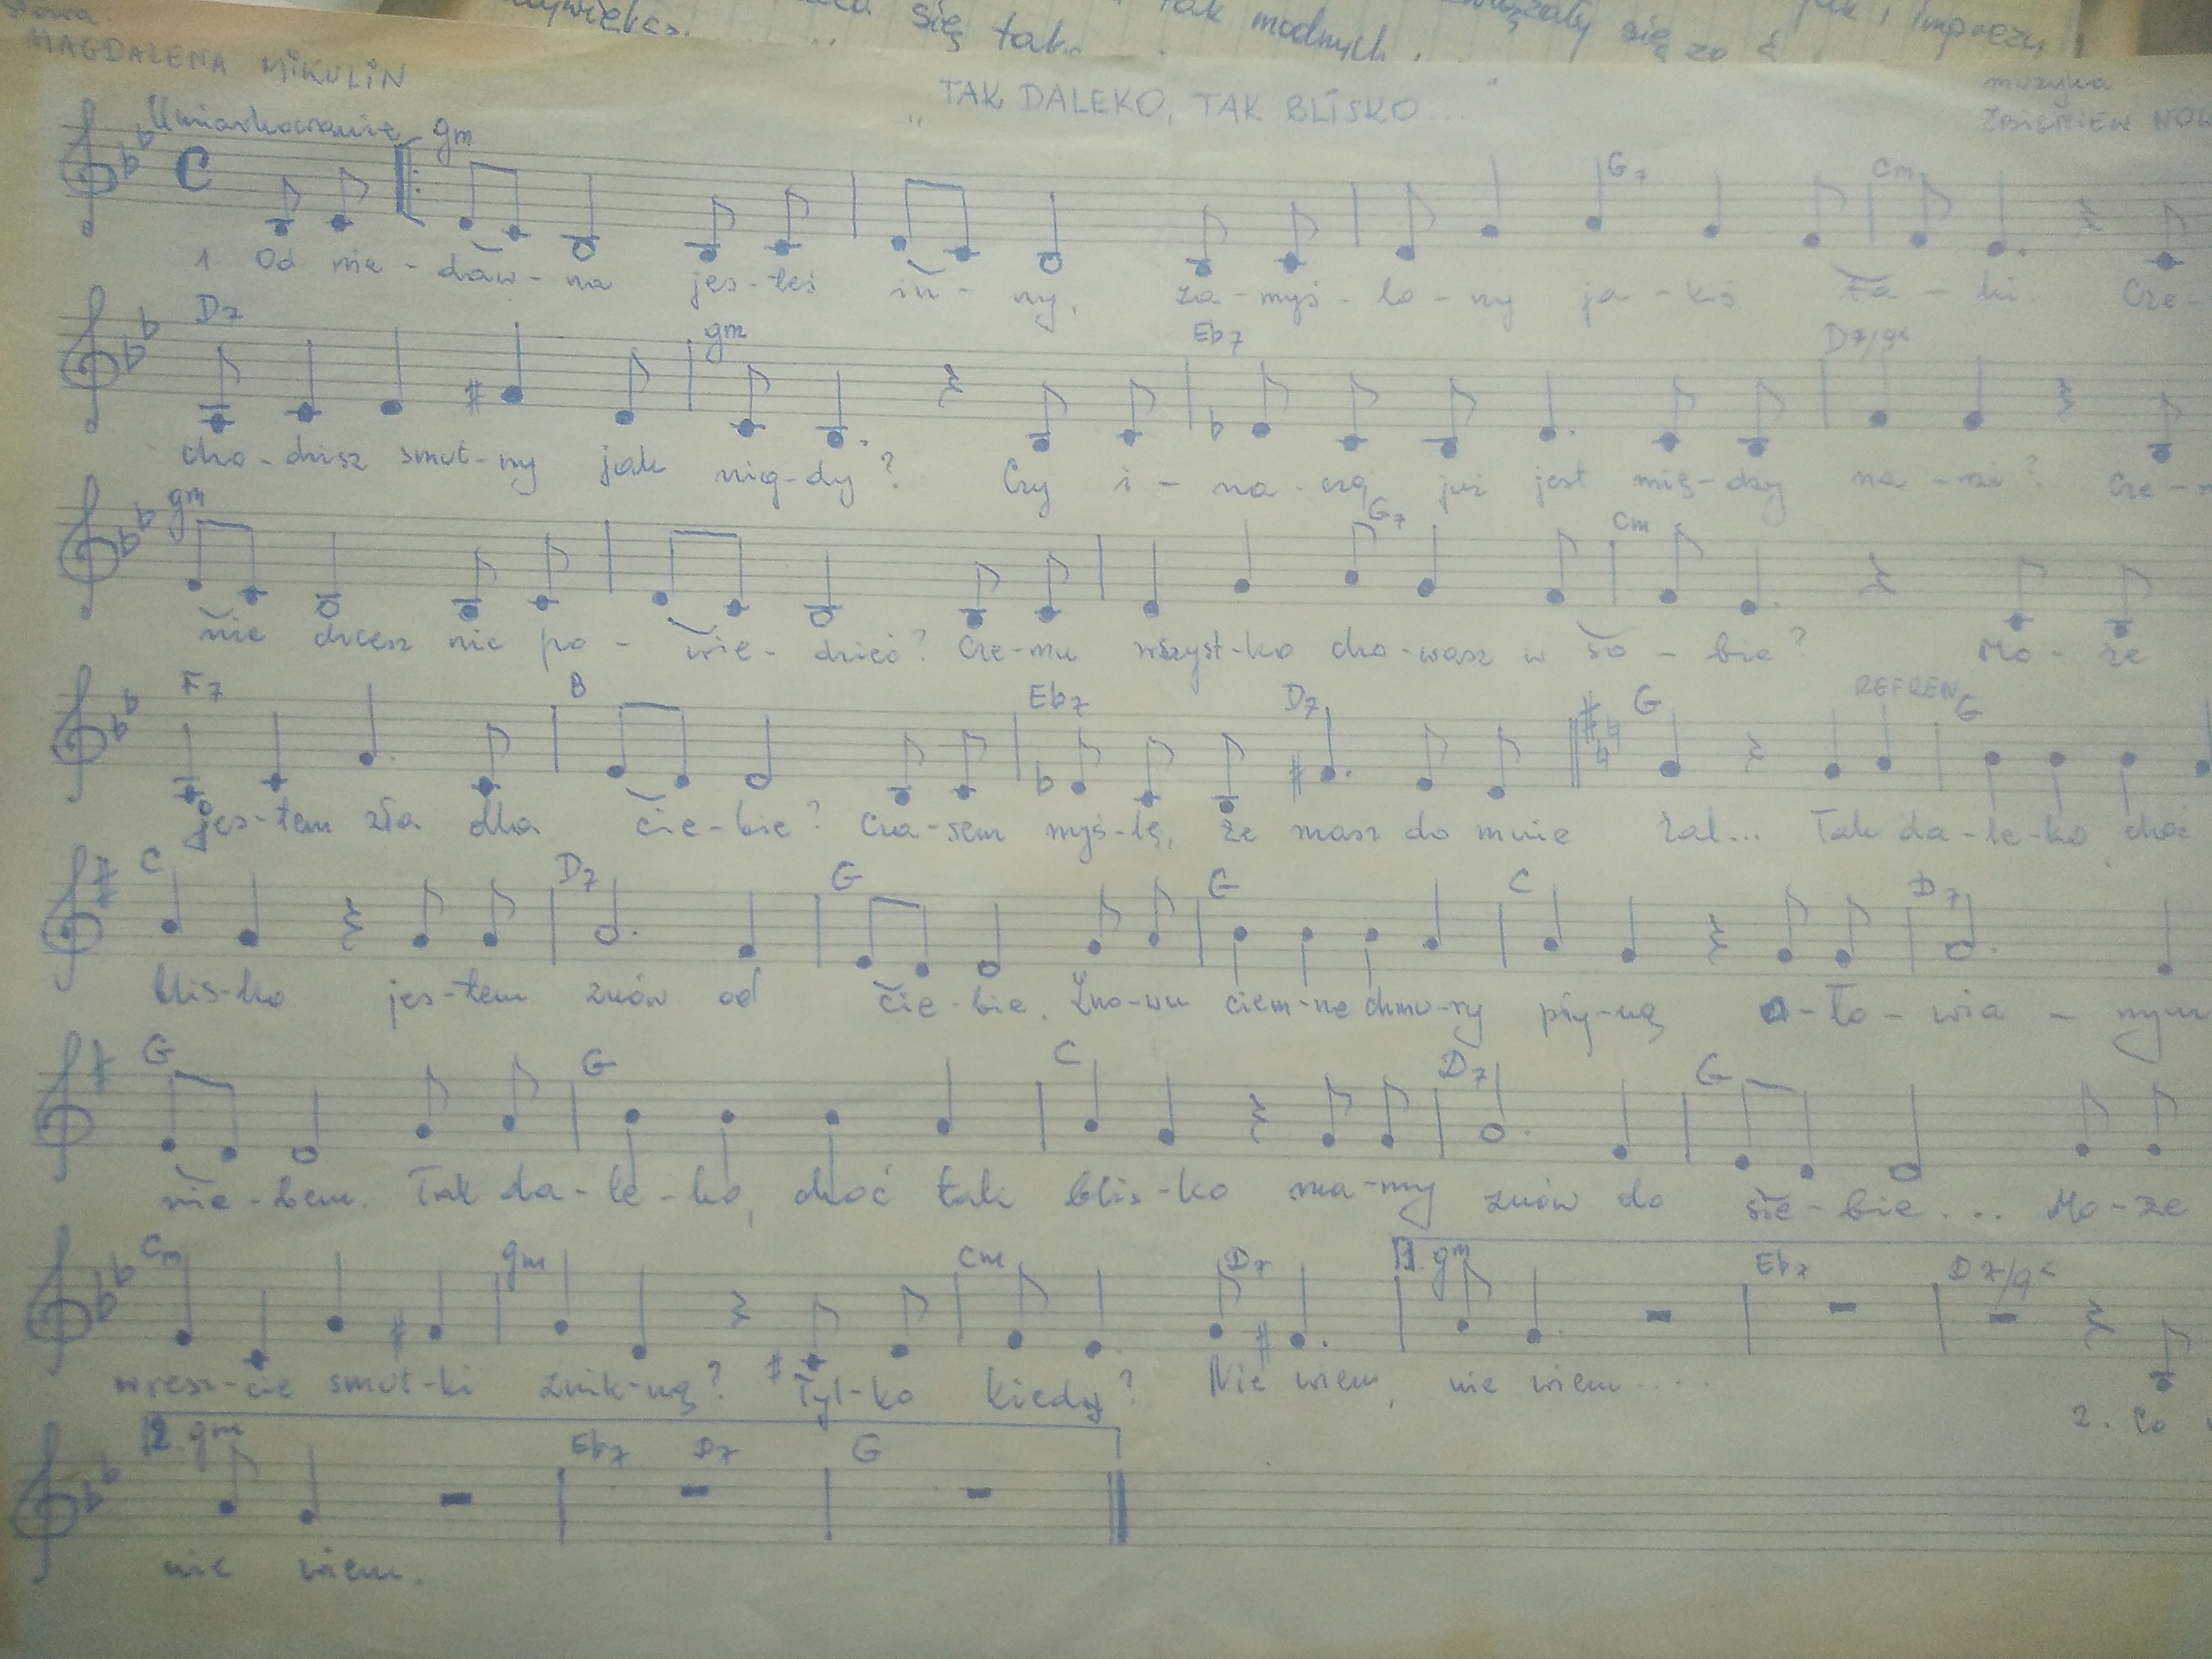 się tak tak modnych się
słowa:
MAGDALENA MIKULIN
„TAK DALEKO, TAK BLISKO..."
muzyka
ZBIGNIEW
Umiarkowanie gm G7 cm
1. Od nie - daw - na jes - teś in - ny, za - myś - lo - ny ja - kiś Ta - ki. Cze -
D7 gm Eb7 D7/g<
cho - dzisz smut - ny jak nig - dy? Czy i - na - czej już jest mię - dzy na - mi? Cze -
gm G7 cm
nie chcesz nic po - wie - dzieć? Cze - mu wszyst - ko cho - wasz w so - bie? Mo - że
F7 B Eb7 D7 G REFREN G
jes - tem zła dla cie - bie? Cza - sem myś - lę, że masz do mnie żal... Tak da - le - ko, choć
C D7 G G C D7
blis - ko jes - tem znów od cie - bie. Zno - wu ciem - ne chmu - ry pły - ną o - ło - wia - nym
G G C D7 G
nie - bem. Tak da - le - ko, choć tak blis - ko ma - my znów do sie - bie... Mo - że
cm gm cm D7 1. gm Eb7 D7/g<
wresz - cie smut - ki znik - ną? Tyl - ko kiedy? Nie wiem, nie wiem....
2. Co
2. gm Eb7 D7 G
nie wiem.